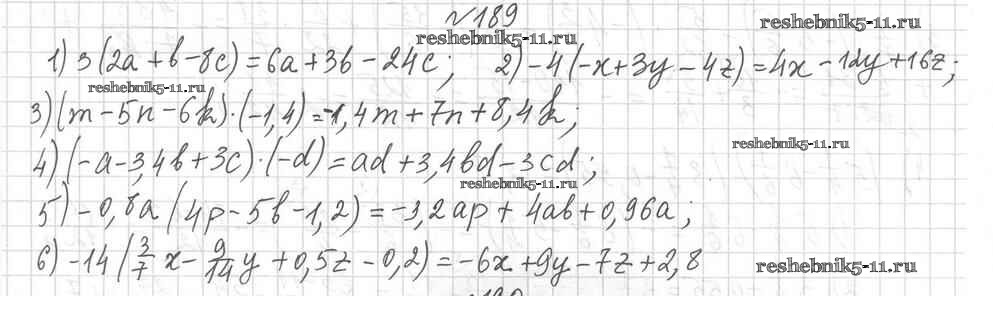 №189
reshebnik5-11.ru
reshebnik5-11.ru
1) 3(2a+b-8c)=6a+3b-24c; 2) -4(-x+3y-4z)=4x-12y+16z;
reshebnik5-11.ru
3) (m-5n-6k)·(-1,4)=-1,4m+7n+8,4k;
reshebnik5-11.ru
4) (-a-3,4b+3c)·(-d)=ad+3,4bd-3cd;
reshebnik5-11.ru
5) -0,8a(4p-5b-1,2)=-3,2ap+4ab+0,96a;
6) -14(3/7 x-9/14 y+0,5z-0,2)=-6x+9y-7z+2,8
reshebnik5-11.ru